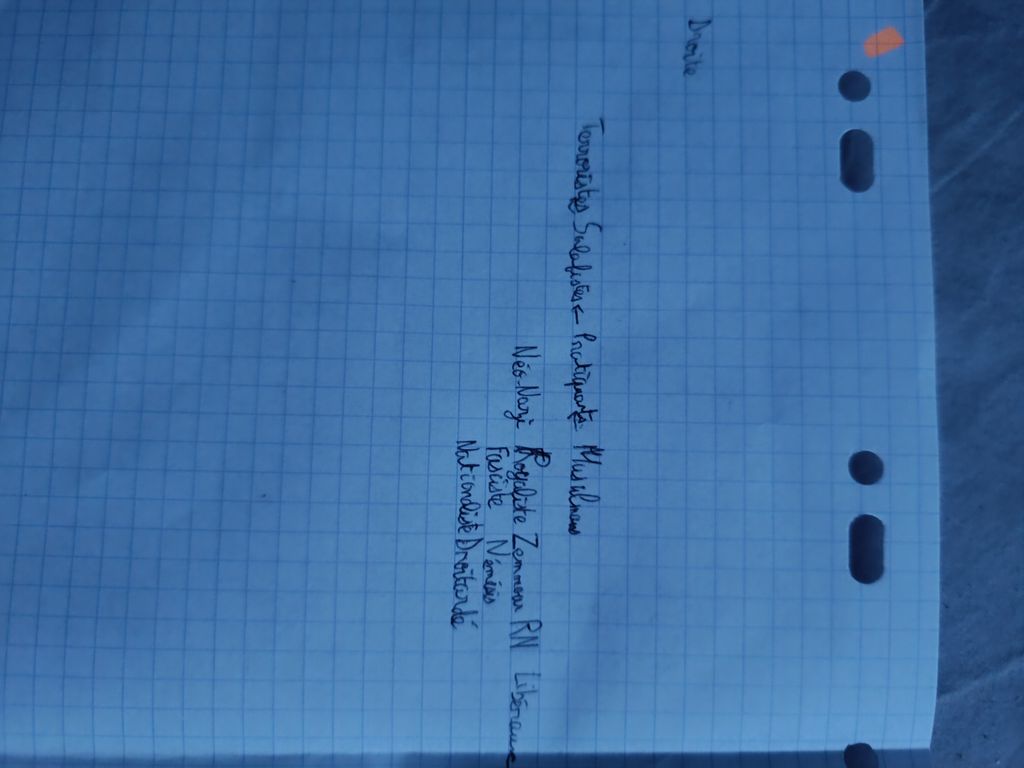 Droite
Terroristes Salafistes ← Pratiquants Musulmans
Néo-Nazi Royaliste Zemmour RN Libéraux
Fasciste Némésis
Nationaliste Droitardé